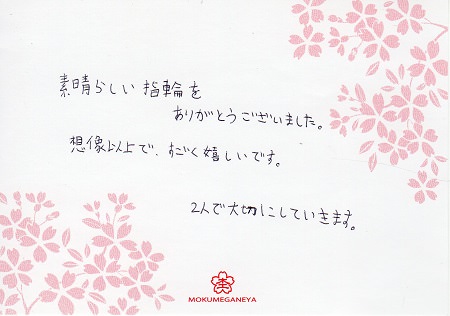 素晴らしい指輪を
ありがとうございました。
想像以上で、すごく嬉しいです。
2人で大切にしていきます。
MOKUMEGANEYA